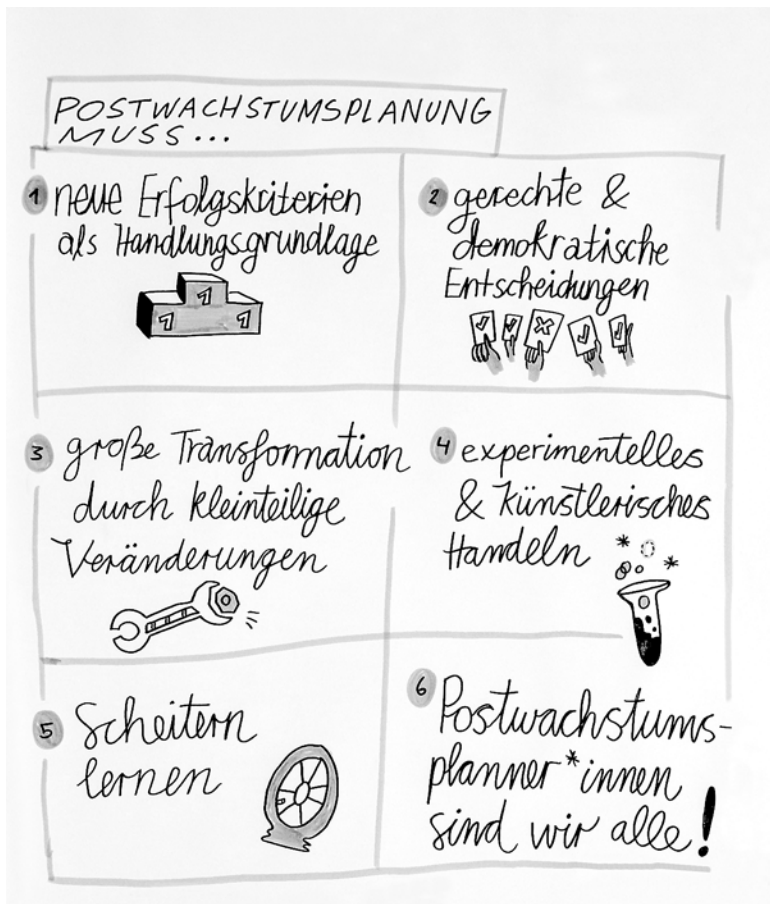 POSTWACHSTUMSPLANUNG
MUSS...
1 neue Erfolgskriterien
als Handlungsgrundlage
1
1 1
2 gerechte &
demokratische
Entscheidungen
3 große Transformation
durch kleinteilige
Veränderungen
4 experimentelles
& künstlerisches
Handeln
5 Scheitern
lernen
6 Postwachstums-
planner*innen
sind wir alle!